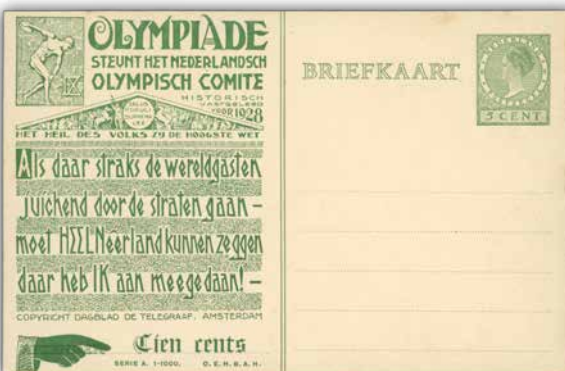 OLYMPIADE
STEUNT HET NEDERLANDSCH
OLYMPISCH COMITE
IX
HISTORISCH
VASTGELEGD
VOOR 1928
SALUS
POPULI
SUPREMA
LEX
HET HEIL DES VOLKS ZY DE HOOGSTE WET
Als daar straks de wereldgasten
juichend door de straten gaan –
moet HEEL Neerland kunnen zeggen
daar heb IK aan meegedaan! –
COPYRIGHT DAGBLAD DE TELEGRAAF, AMSTERDAM
Tien cents
SERIE A. 1-1000.
BRIEFKAART
5 CENT